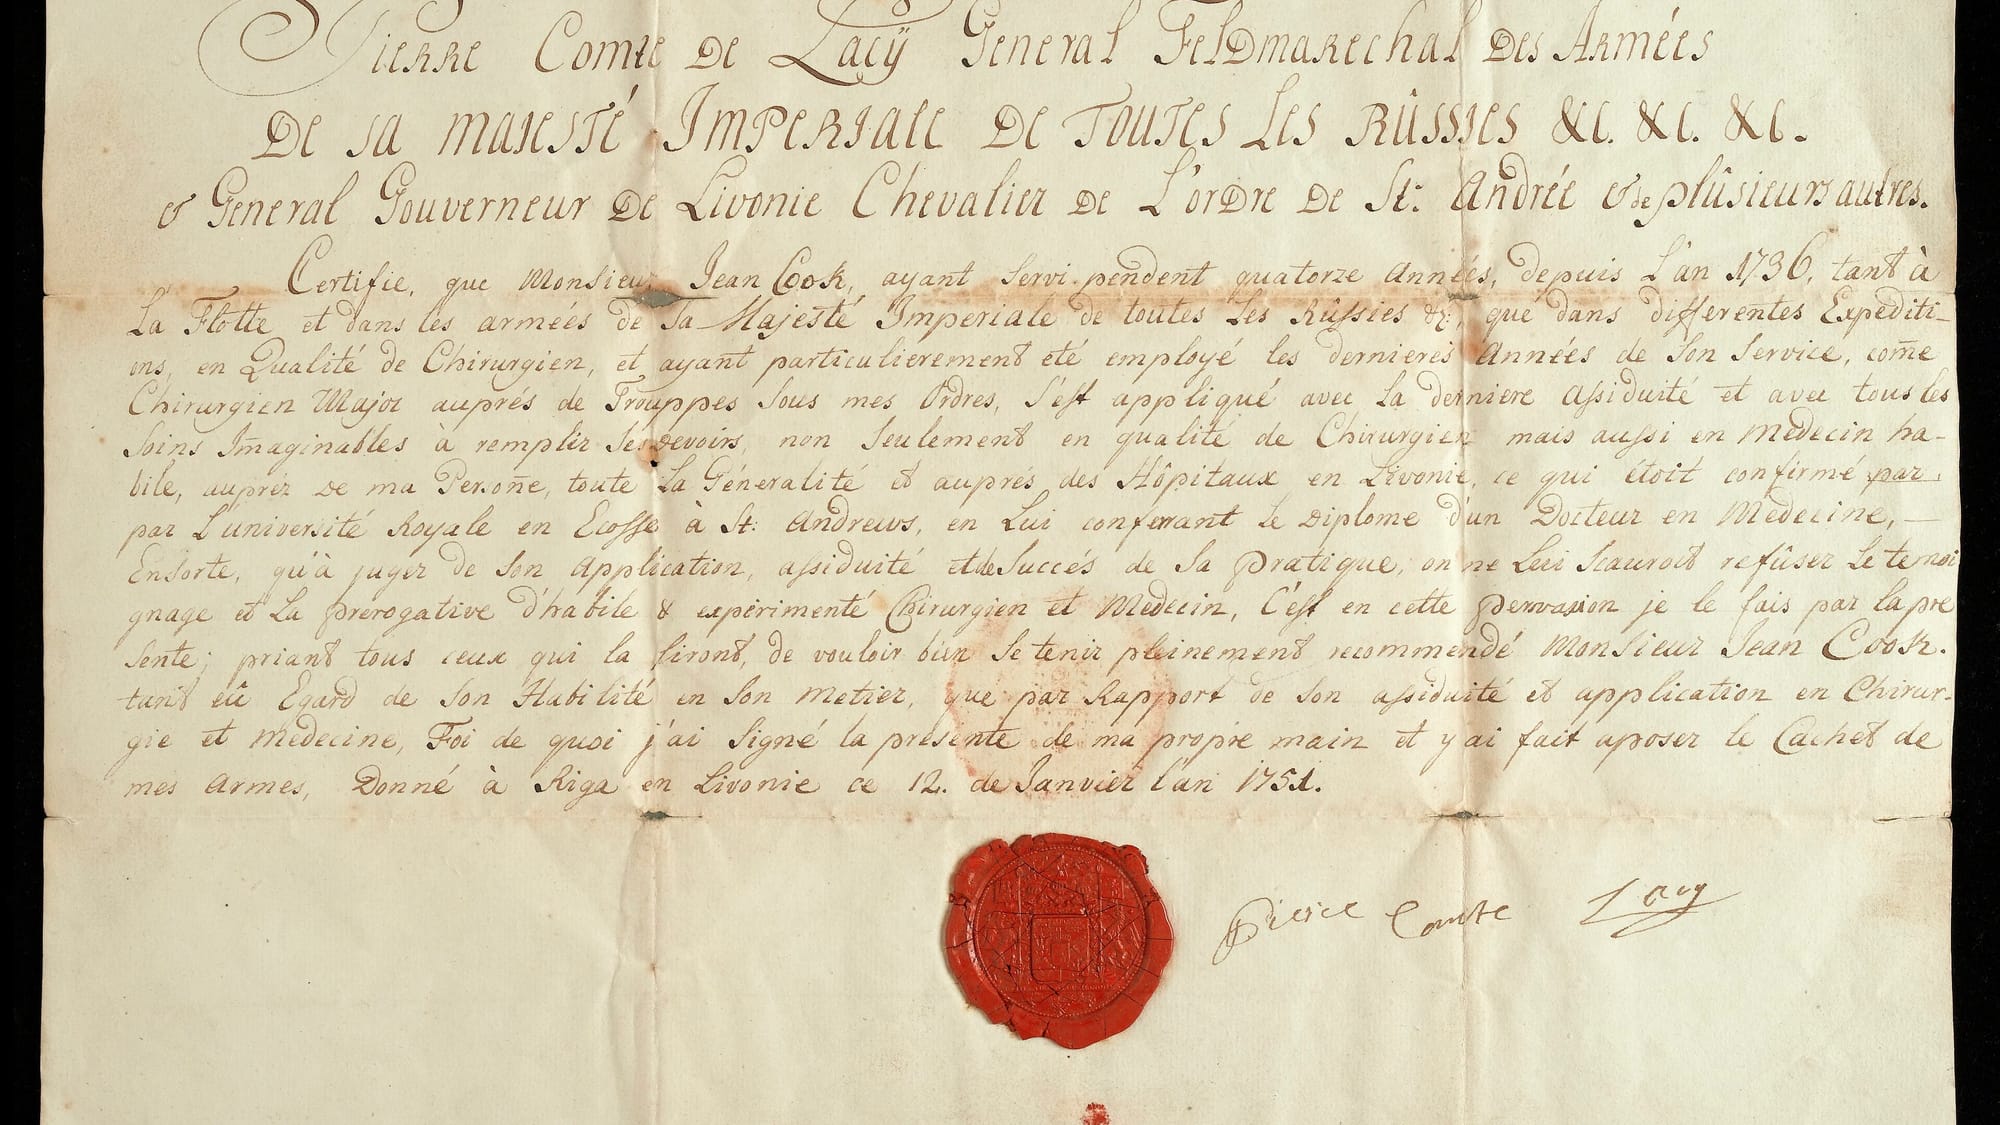 Pierre Comte De Lacÿ General Feldmarechal Des Armées
De sa Majesté Imperiale De Toutes Les Rûssies &c. &c. &c.
& General Gouverneur De Livonie Chevalier De L'ordre De St: Andrée & de plûsieurs autres.
Certifie, que Monsieur Jean Cook, ayant servi pendent quatorze Années, depuis l'an 1736, tant à
La Flotte et dans les armées de Sa Majesté Imperiale de toutes Les Rûssies &c:, que dans differentes Expediti-
ons, en Qualité de Chirurgien, et ayant particulierement eté employé les dernieres Années de Son Service, come
Chirurgien Major auprés de Trouppes Sous mes Ordres, S'est appliqué avec La derniere Assiduité et avec tous les
Soins Imaginables à remplir Ses Devoirs, non Seulement en qualité de Chirurgien mais aussi en Medecin ha-
bile, auprez De ma Persone, toute La Géneralité et auprés des Hôpitaux en Livonie, ce qui étoit confirmé par
par L'université Royale en Ecosse à St: Andrews, en Lui conferrant Le Diplome d'un Docteur en Medecine, —
Ensorte, qu'à juger de Son Application, assiduité et de Succés de Sa Pratique, on ne Lui Scauroit refûser Le temoi
gnage et La prerogative d'habile & expérimenté Chirurgien et Medecin, C'est en cette Pervasion je le fais par la pre
sente; priant tous ceux qui la liront, de vouloir bien Se tenir pleinement recommendé Monsieur Jean Cook.
tant eû Egard de Son Habilité en Son metier, que par Rapport de Son assiduité et application en Chirur-
gie et Medecine, Foi de quoi j'ai Signé la présente de ma propre main et y ai fait aposer le Cachet de
mes Armes, Donné à Riga en Livonie ce 12. de Janvier l'an 1751.
Pierce Comte Lacy